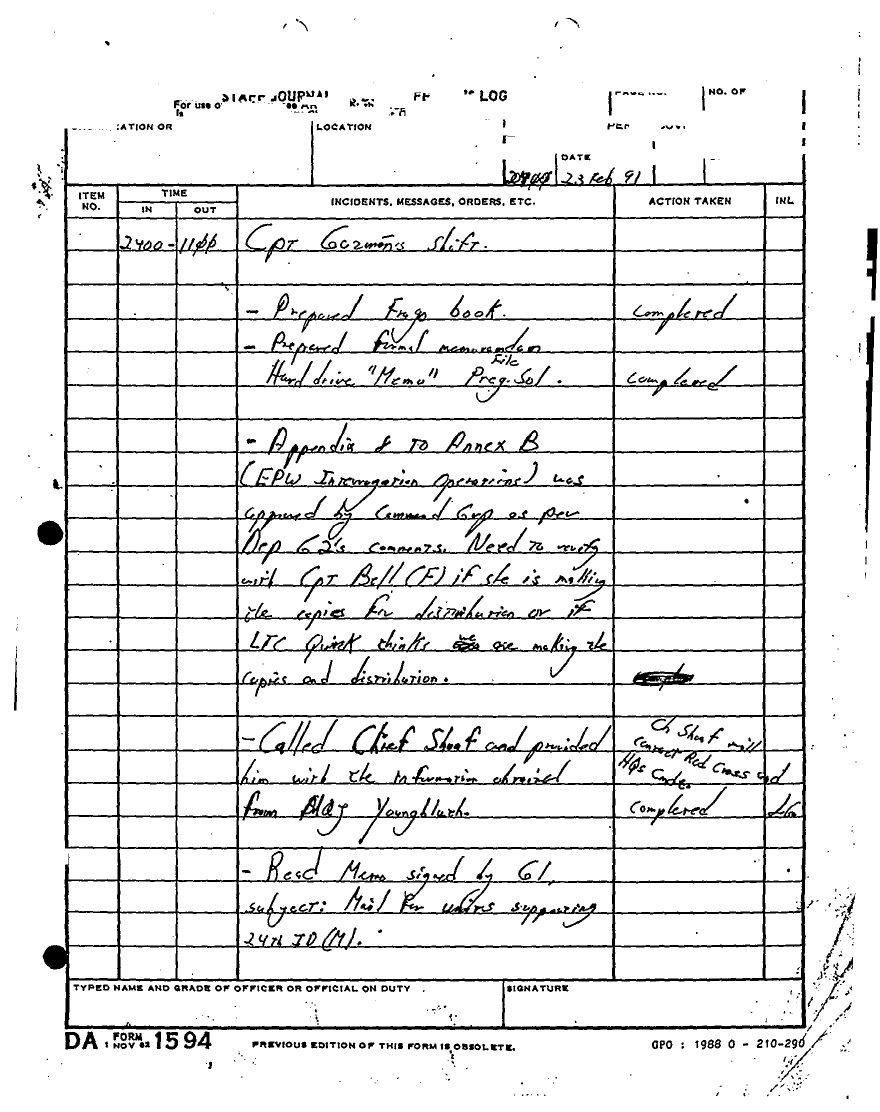 STAFF JOURNAL LOG
For use o
NO. OF
ATION OR
LOCATION
PER
DATE
23 Feb 91
ITEM NO.
TIME
IN
OUT
INCIDENTS, MESSAGES, ORDERS, ETC.
ACTION TAKEN
INL
2400-1100 Cpt Guzman's shift.
- Prepared Frago book. completed
- Prepared formal memorandum
File
Hard drive "Memo" Preg.Sol. completed
- Appendix 8 to Annex B
(EPW Interrogation Operations) was
approved by Command Grp as per
Dep G2's comments. Need to verify
with Cpt Bell (F) if she is making
the copies for distribution or if
LTC Quirk thinks we are making the
copies and distribution.
- Called Chief Shoaf and provided
him with the information obtained
from MAJ
Ch Shoaf will
contact Red Cross and
HQs
completed LG
- Read Memo signed by G1,
subject: Mail for units supporting
24th ID (M).
TYPED NAME AND GRADE OF OFFICER OR OFFICIAL ON DUTY
SIGNATURE
DA FORM 1594
1 NOV 62
PREVIOUS EDITION OF THIS FORM IS OBSOLETE.
GPO : 1988 O - 210-290